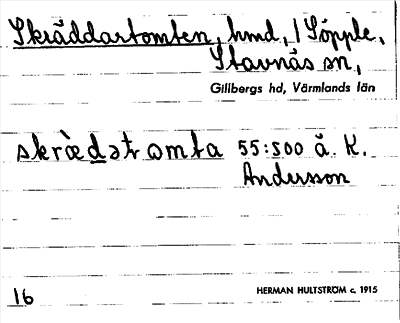 Skräddartomten, hmd, / Söpple,
Stavnäs sn,
Gillbergs hd, Värmlands län
skræ̀dətrom̥ta 55:500 ä. K.
Andersson
16
HERMAN HULTSTRÖM c. 1915